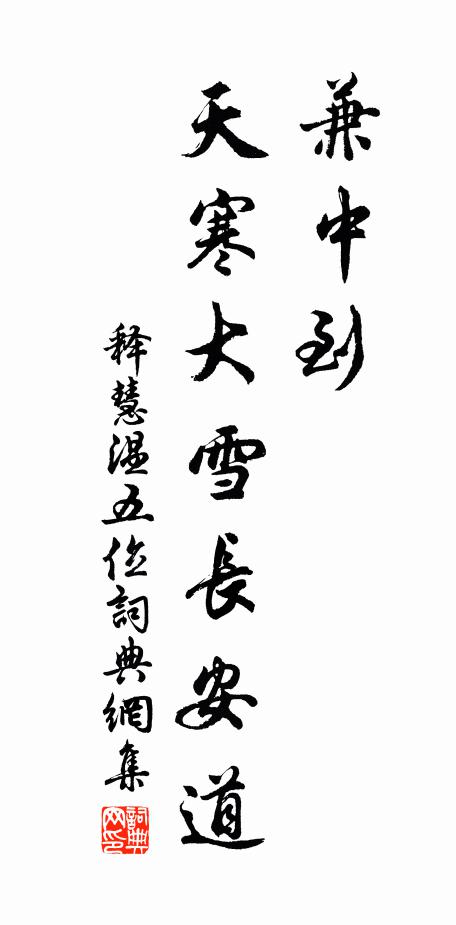 兼中到
天寒大雪長安道
释慧温五位詞典網集
詞典
网印